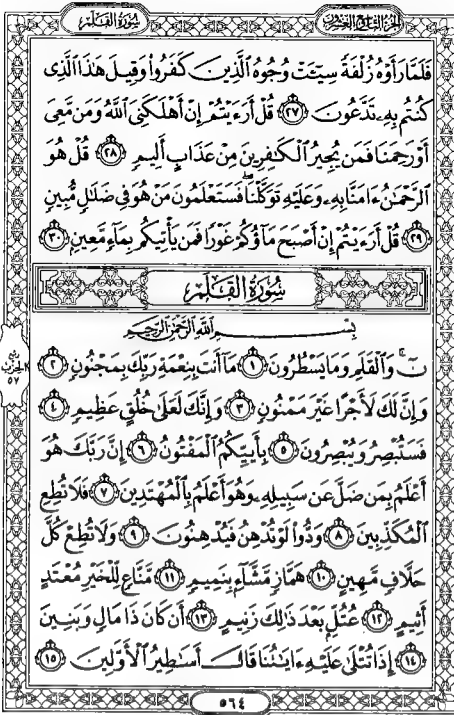 سُورَةُ القَلَمِ الجُزءُ التَّاسِعُ وَالعِشْرُونَ
فَلَمَّا رَأَوْهُ زُلْفَةً سِيٓـَٔتْ وُجُوهُ ٱلَّذِينَ كَفَرُوا۟ وَقِيلَ هَٰذَا ٱلَّذِى
كُنتُم بِهِۦ تَدَّعُونَ ٢٧ قُلْ أَرَءَيْتُمْ إِنْ أَهْلَكَنِىَ ٱللَّهُ وَمَن مَّعِىَ
أَوْ رَحِمَنَا فَمَن يُجِيرُ ٱلْكَٰفِرِينَ مِنْ عَذَابٍ أَلِيمٍ ٢٨ قُلْ هُوَ
ٱلرَّحْمَٰنُ ءَامَنَّا بِهِۦ وَعَلَيْهِ تَوَكَّلْنَا ۖ فَسَتَعْلَمُونَ مَنْ هُوَ فِى ضَلَٰلٍ مُّبِينٍ
٢٩ قُلْ أَرَءَيْتُمْ إِنْ أَصْبَحَ مَآؤُكُمْ غَوْرًا فَمَن يَأْتِيكُم بِمَآءٍ مَّعِينٍۭ ٣٠
سُورَةُ القَلَمِ
بِسْمِ ٱللَّهِ ٱلرَّحْمَٰنِ ٱلرَّحِيمِ
نٓ ۚ وَٱلْقَلَمِ وَمَا يَسْطُرُونَ ١ مَآ أَنتَ بِنِعْمَةِ رَبِّكَ بِمَجْنُونٍ ٢
وَإِنَّ لَكَ لَأَجْرًا غَيْرَ مَمْنُونٍ ٣ وَإِنَّكَ لَعَلَىٰ خُلُقٍ عَظِيمٍ ٤
فَسَتُبْصِرُ وَيُبْصِرُونَ ٥ بِأَييِّكُمُ ٱلْمَفْتُونُ ٦ إِنَّ رَبَّكَ هُوَ
أَعْلَمُ بِمَن ضَلَّ عَن سَبِيلِهِۦ وَهُوَ أَعْلَمُ بِٱلْمُهْتَدِينَ ٧ فَلَا تُطِعِ
ٱلْمُكَذِّبِينَ ٨ وَدُّوا۟ لَوْ تُدْهِنُ فَيُدْهِنُونَ ٩ وَلَا تُطِعْ كُلَّ
حَلَّافٍ مَّهِينٍ ١٠ هَمَّازٍ مَّشَّآءٍۭ بِنَمِيمٍ ١١ مَّنَّاعٍ لِّلْخَيْرِ مُعْتَدٍ
أَثِيمٍ ١٢ عُتُلٍّۭ بَعْدَ ذَٰلِكَ زَنِيمٍ ١٣ أَن كَانَ ذَا مَالٍ وَبَنِينَ
١٤ إِذَا تُتْلَىٰ عَلَيْهِ ءَايَٰتُنَا قَالَ أَسَٰطِيرُ ٱلْأَوَّلِينَ ١٥
ربع
الحزب
٥٧
٥٦٤